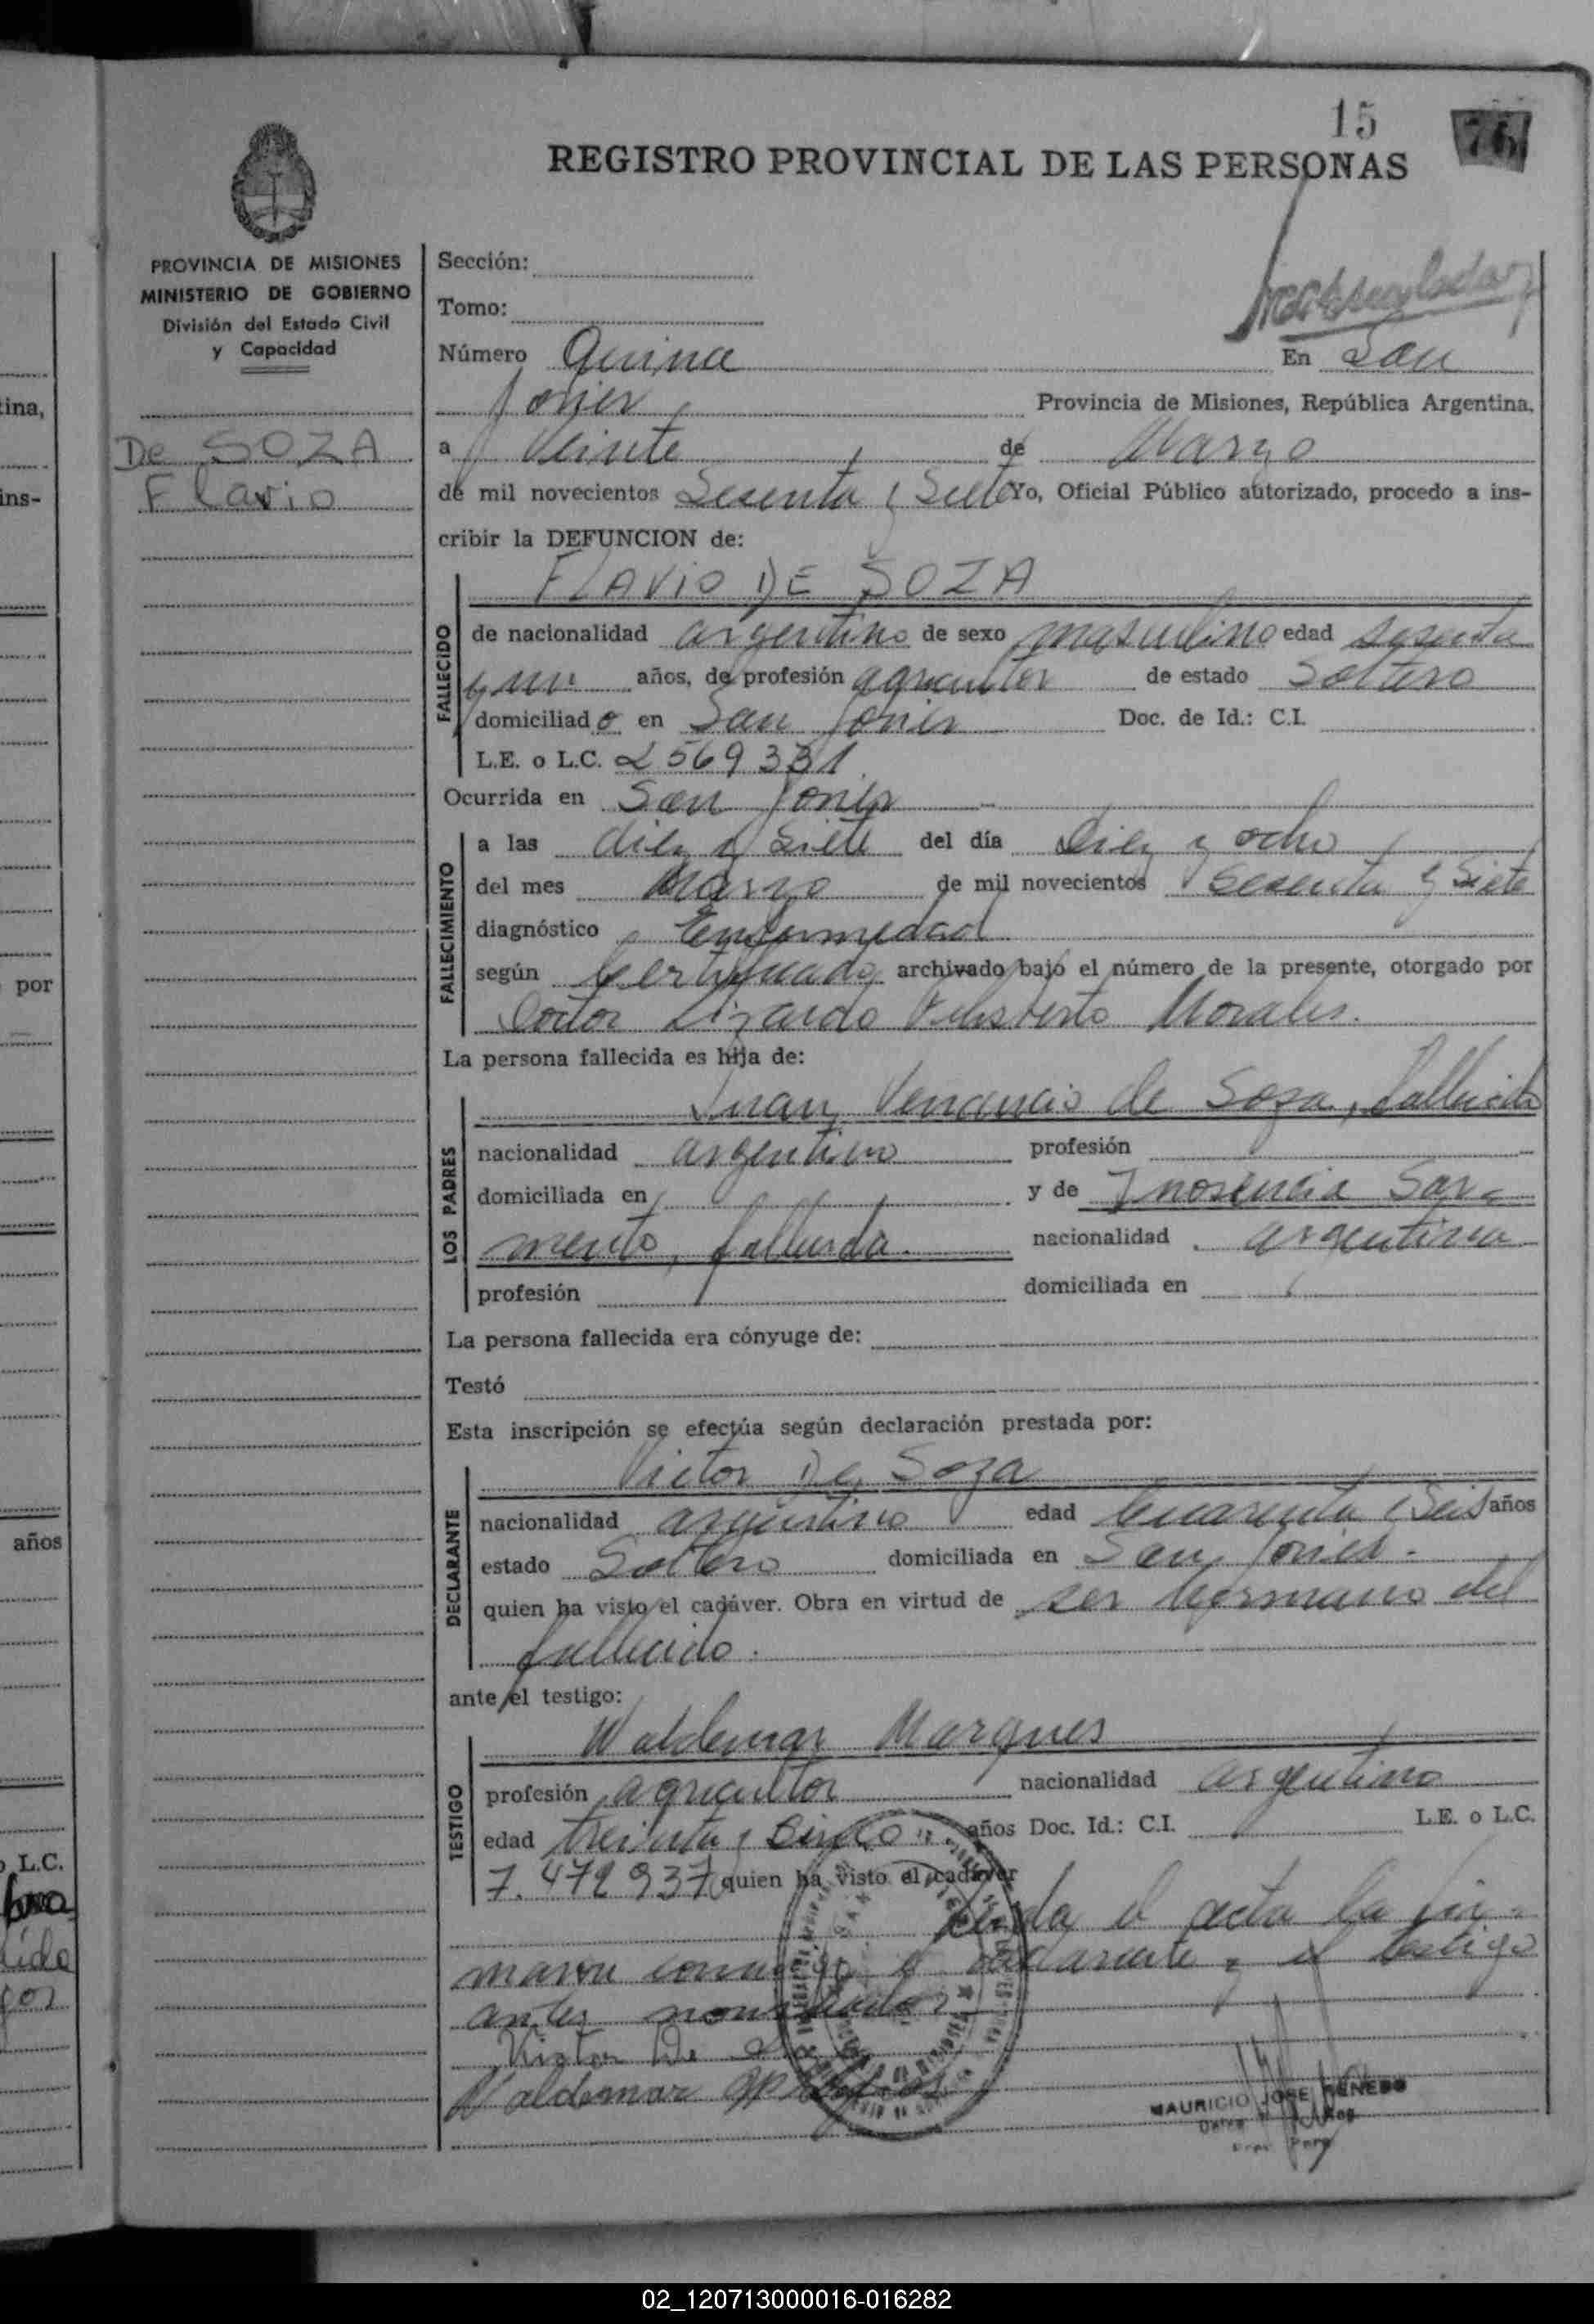 15
76
REGISTRO PROVINCIAL DE LAS PERSONAS
PROVINCIA DE MISIONES
MINISTERIO DE GOBIERNO
División del Estado Civil
y Capacidad
De SOZA
Flavio
Sección:
Tomo:
Número Quince En San
Javier Provincia de Misiones, República Argentina,
a Veinte de Marzo
de mil novecientos Sesenta y Siete Yo, Oficial Público autorizado, procedo a ins-
cribir la DEFUNCION de:
FLAVIO DE SOZA
FALLECIDO
de nacionalidad argentino de sexo masculino edad sesenta
y un años, de profesión agricultor de estado Soltero
domiciliado en San Javier Doc. de Id.: C.I.
L.E. o L.C. 2569331
Ocurrida en San Javier
FALLECIMIENTO
a las diez y siete del día diez y ocho
del mes Marzo de mil novecientos Sesenta y Siete
diagnóstico Enfermedad
según Certificado archivado bajo el número de la presente, otorgado por
Doctor Lizardo Morales.
La persona fallecida es hija de:
LOS PADRES
Juan Venancio de Soza, fallecido
nacionalidad argentino profesión
domiciliada en y de Inosencia Sar-
mento, fallecida. nacionalidad argentina
profesión domiciliada en
La persona fallecida era cónyuge de:
Testó
Esta inscripción se efectúa según declaración prestada por:
DECLARANTE
Victor De Soza
nacionalidad argentino edad Cuarenta y Seis años
estado Soltero domiciliada en San Javier.
quien ha visto el cadáver. Obra en virtud de ser hermano del
fallecido.
ante el testigo:
TESTIGO
Waldemar Marques
profesión agricultor nacionalidad argentino
edad treinta y Cinco años Doc. Id.: C.I. L.E. o L.C.
7.472937 quien ha visto el cadáver
Leida el acta la fir-
maron conmigo el declarante y el testigo
antes nombrados
Victor De
Waldemar
MAURICIO JOSE
ina,
ins-
por
años
L.C.
02_120713000016-016282